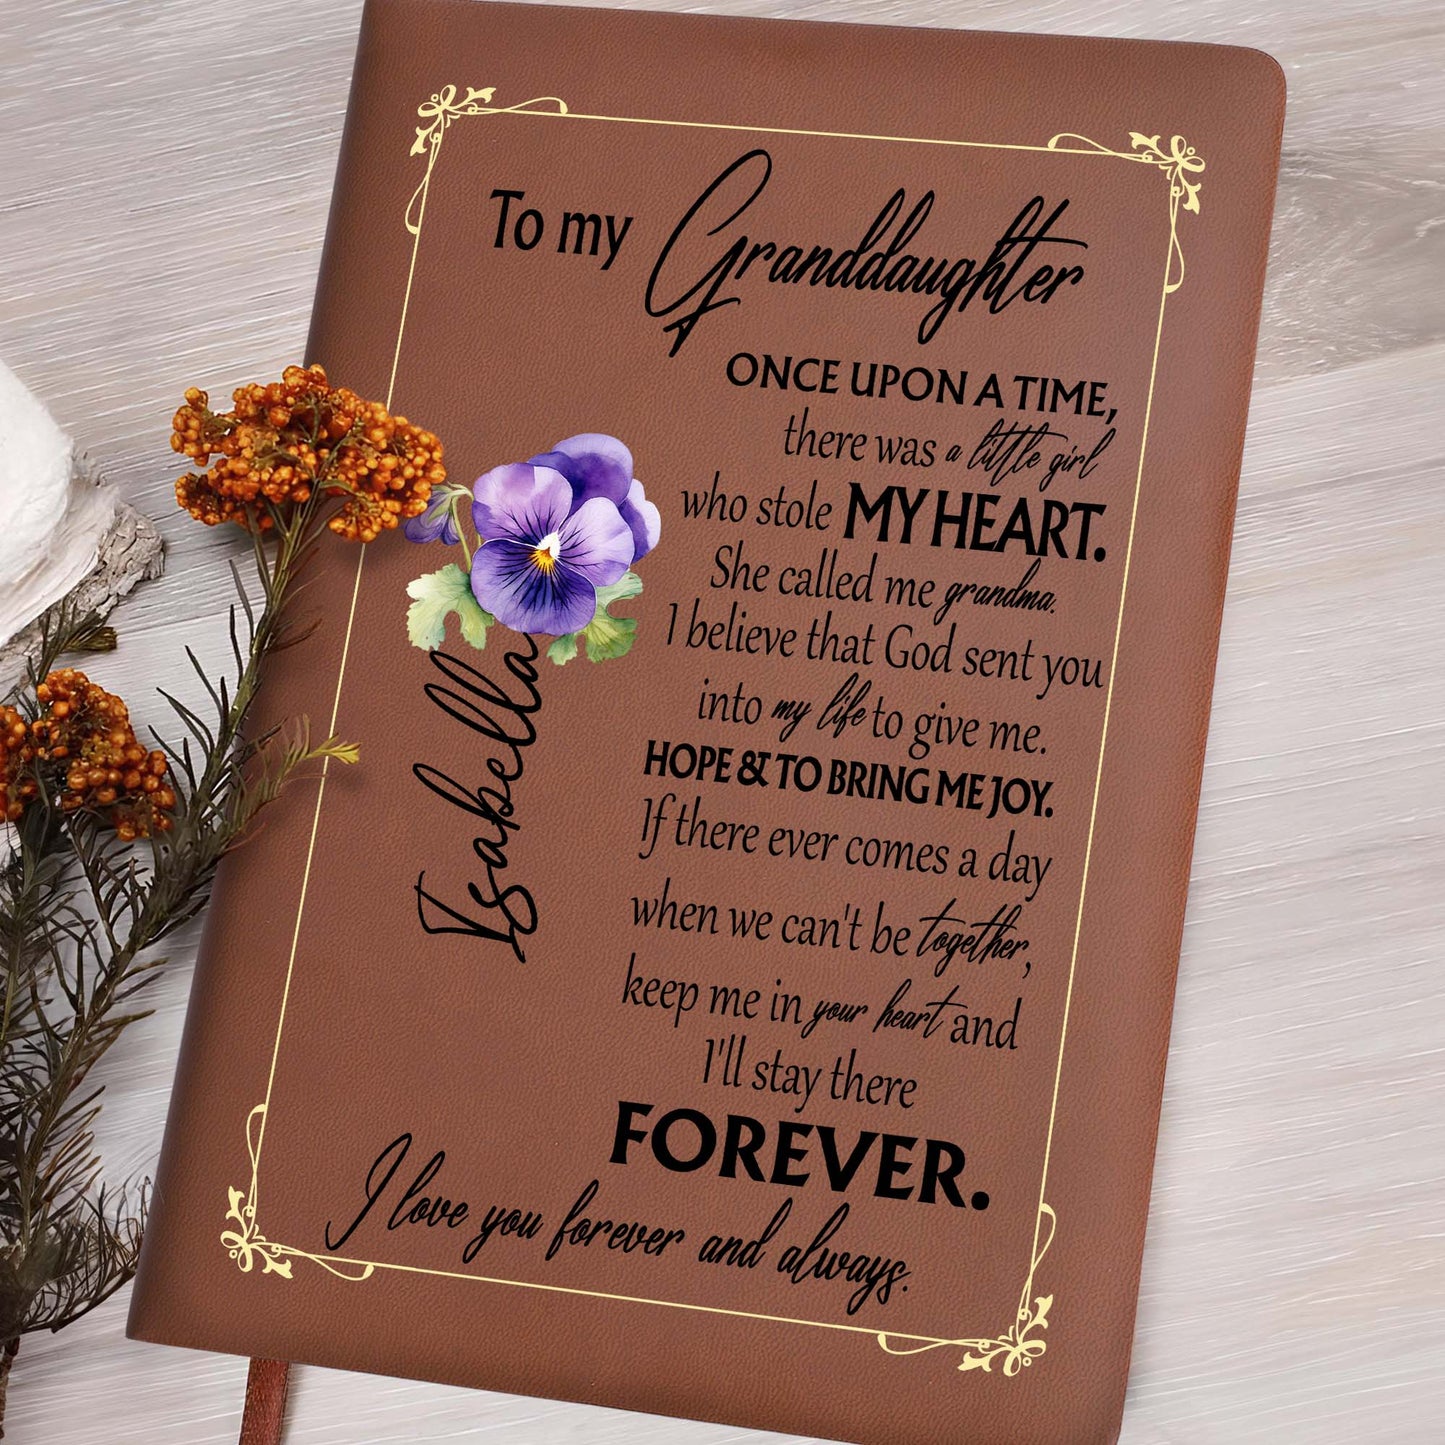 To my Granddaughter
ONCE UPON A TIME,
there was a little girl
who stole MY HEART.
She called me grandma.
I believe that God sent you
into my life to give me.
HOPE & TO BRING ME JOY.
If there ever comes a day
when we can't be together,
keep me in your heart and
I'll stay there
FOREVER.
I love you forever and always.
Isabella